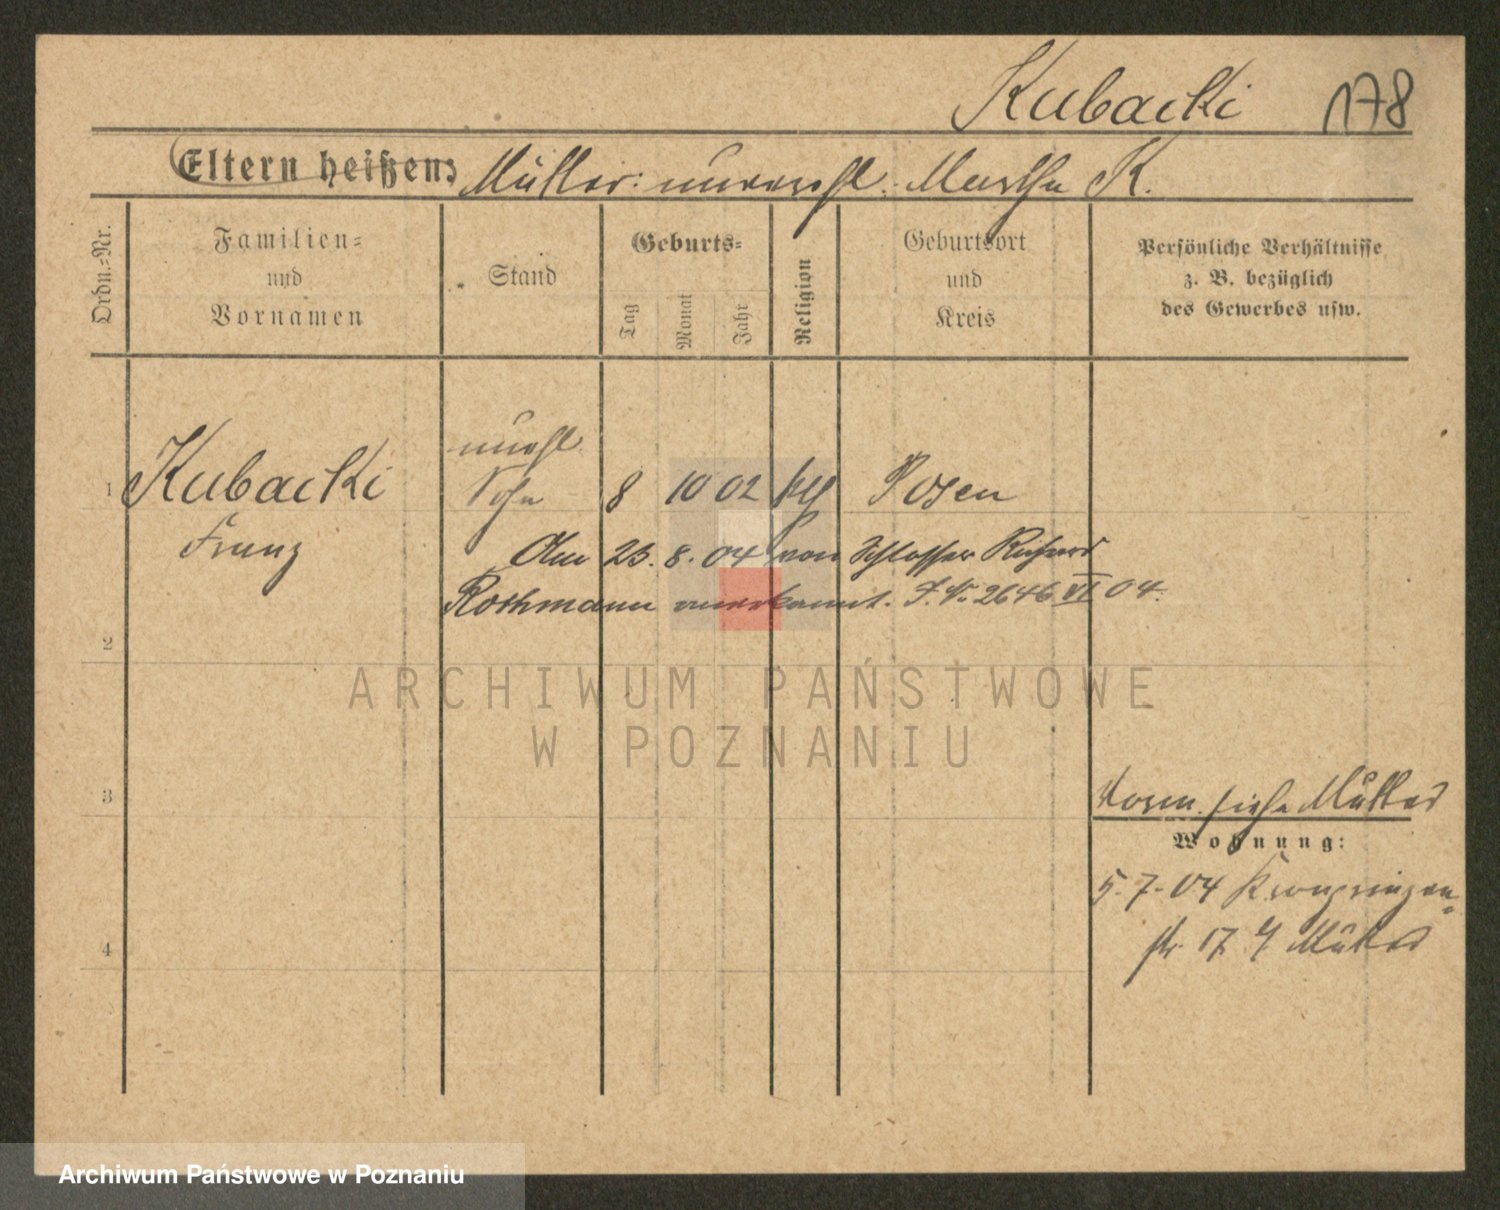 Kubacki 178
Eltern heißen: Mutter: unverehl. Martha K.
Ordn.-Nr.
Familien-
und
Vornamen
Stand
Geburts-
Tag
Monat
Jahr
Religion
Geburtsort
und
Kreis
Persönliche Verhältnisse
z. B. bezüglich
des Gewerbes usw.
unehl.
1 Kubacki Sohn 8 10 02 kth Posen
Franz
Am 23. 8. 04 von Schlosser Richard
Rothmann anerkannt. J. N. 2646 VI 04.
2
3
4
ARCHIWUM PAŃSTWOWE
W POZNANIU
siehe Mutter
Wohnung:
5. 7. 04 Kronprinzen-
str. 17 Mutter
Archiwum Państwowe w Poznaniu